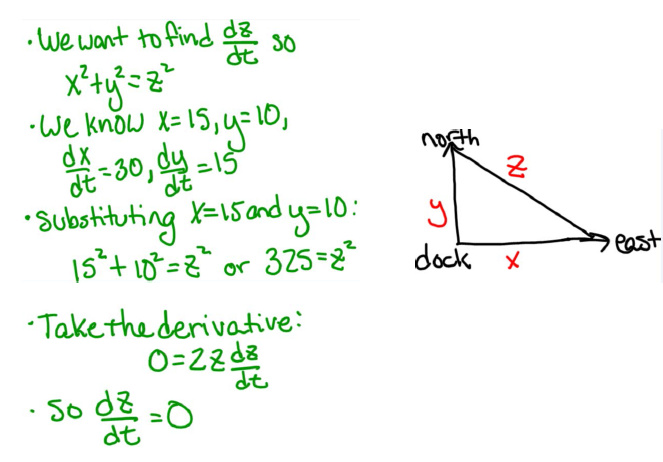 · We want to find dz/dt so
x²+y²=z²
· We know x=15, y=10,
dx/dt=30, dy/dt=15
· Substituting x=15 and y=10:
15²+10²=z² or 325=z²
· Take the derivative:
0=2z dz/dt
· So dz/dt=0
north
z
y
dock
x
east